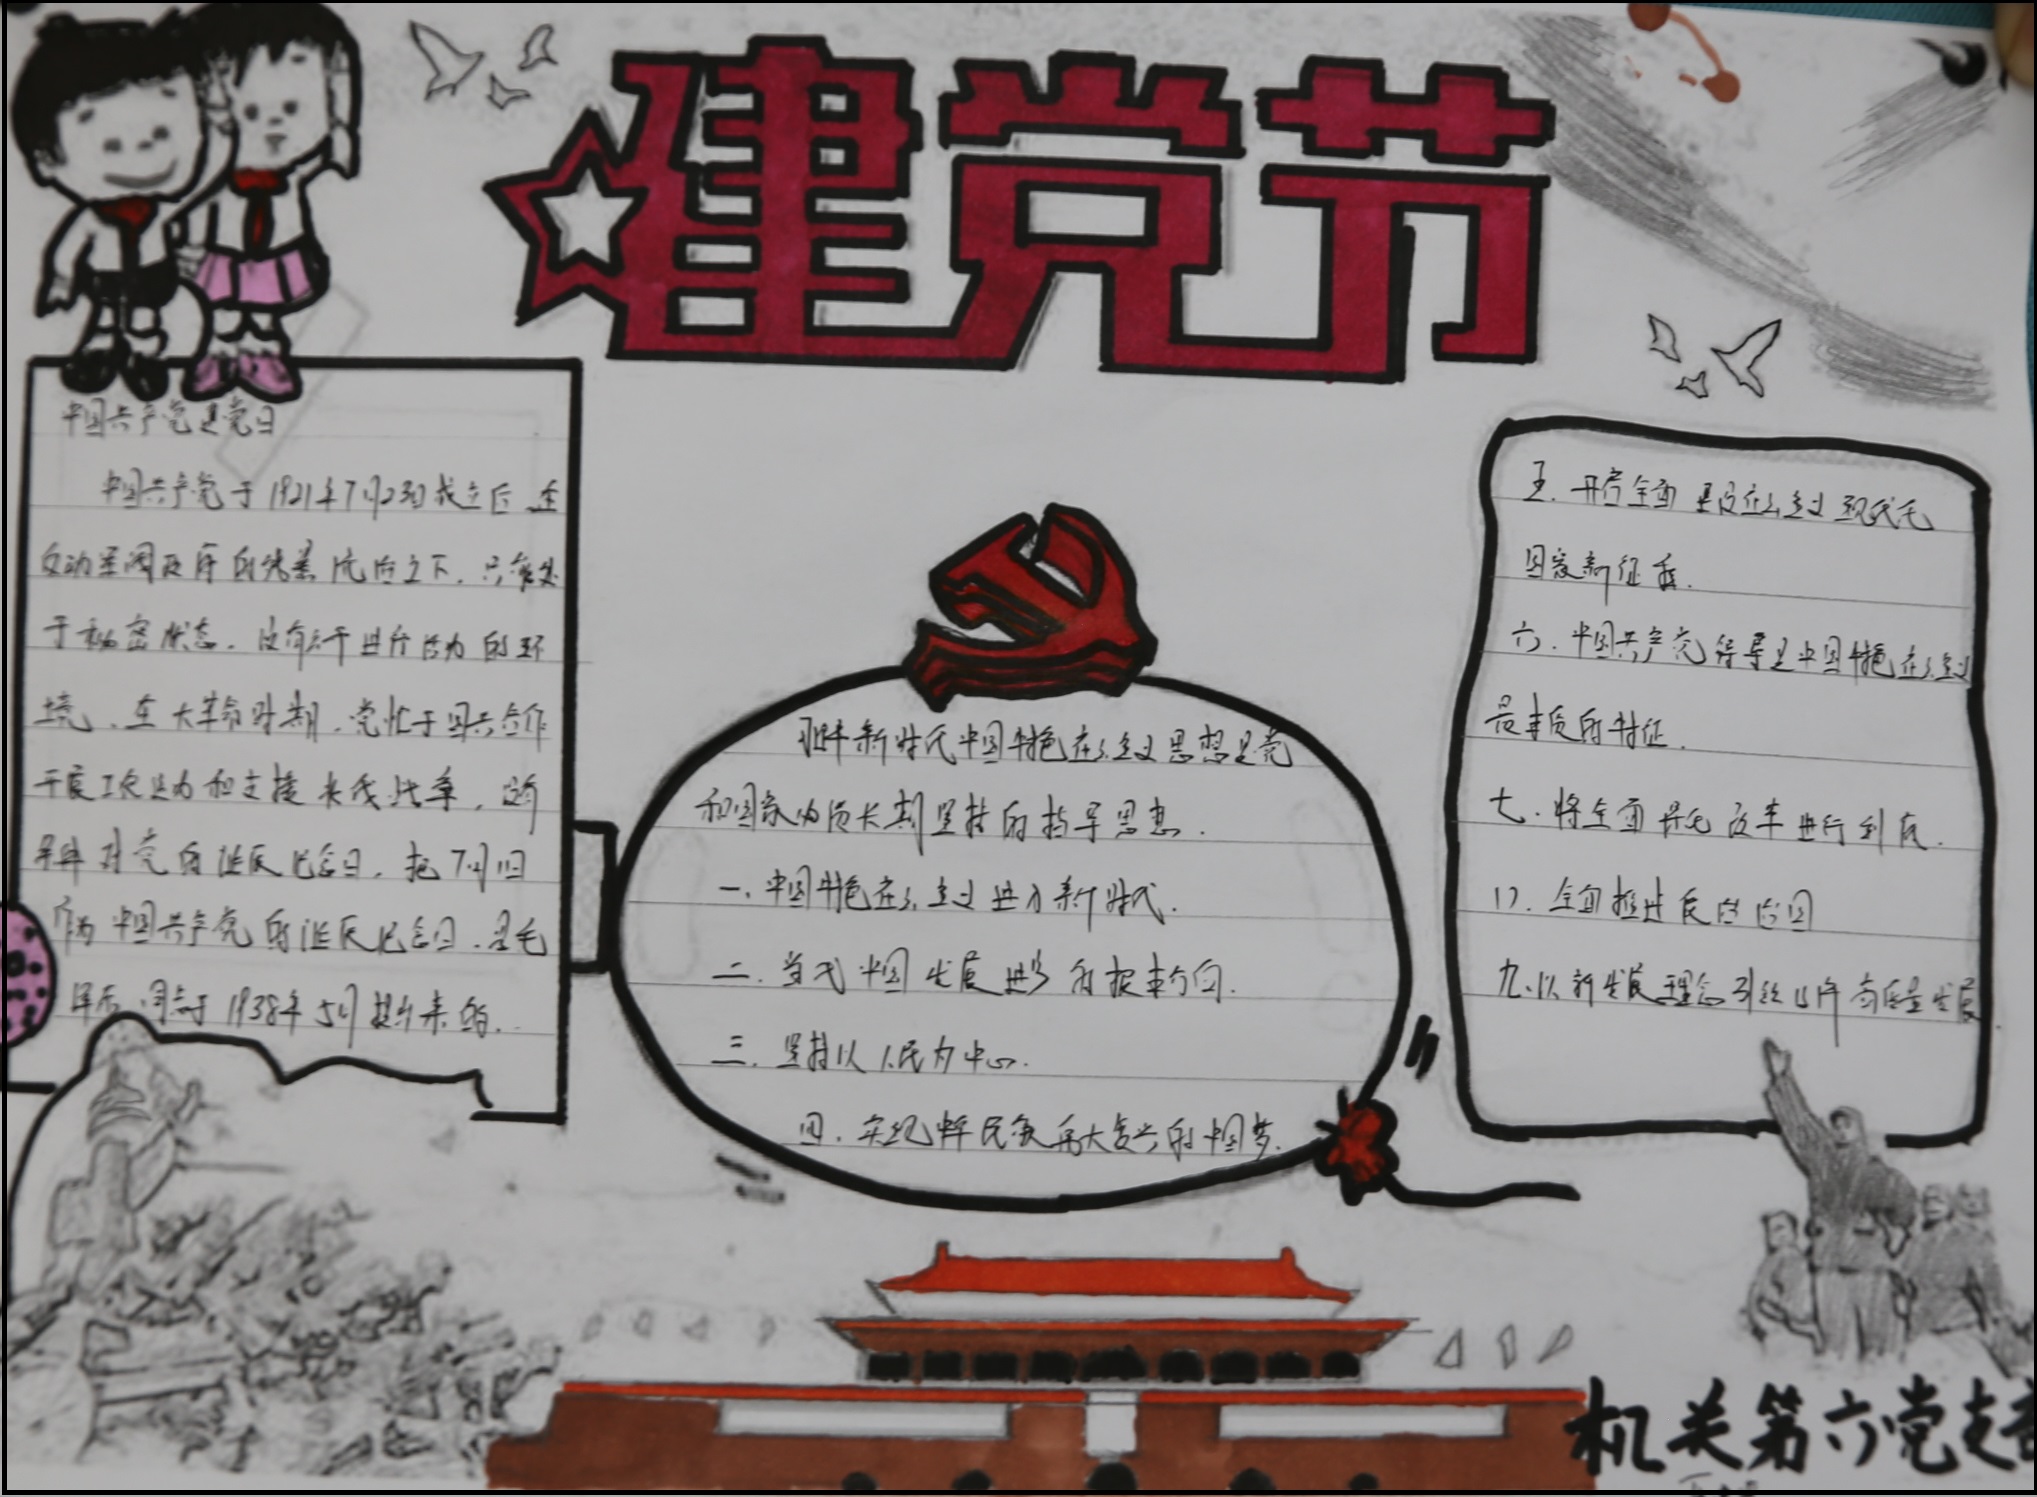 建党节
中国共产党建党日
中国共产党于1921年7月23日成立后,在
反动军阀政府的残暴统治之下,只能处
于秘密状态,没有公开进行活动的环
境、在大革命时期,党忙于国共合作
开展工农运动和支援北伐战争,没有
对党的诞辰纪念日,把7月1日
作为中国共产党的诞辰纪念日,是毛
泽东同志于1938年5月提出来的.
习近平新时代中国特色社会主义思想是党
和国家必须长期坚持的指导思想.
一、中国特色社会主义进入新时代.
二.当代中国发展进步的根本方向.
三.坚持以人民为中心.
四.实现中华民族伟大复兴的中国梦.
五.开启全面建设社会主义现代化
国家新征程.
六.中国共产党领导是中国特色社会主义
最本质的特征.
七.将全面深化改革进行到底.
八.全面推进依法治国
九.以新发展理念引领经济高质量发展.
机关第六党支部